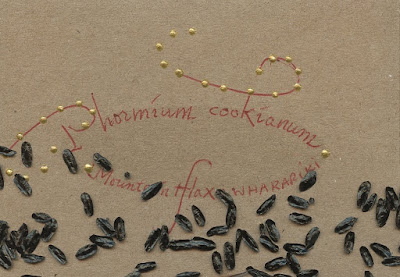 Phormium cookianum
Mountain flax WHARARIKI